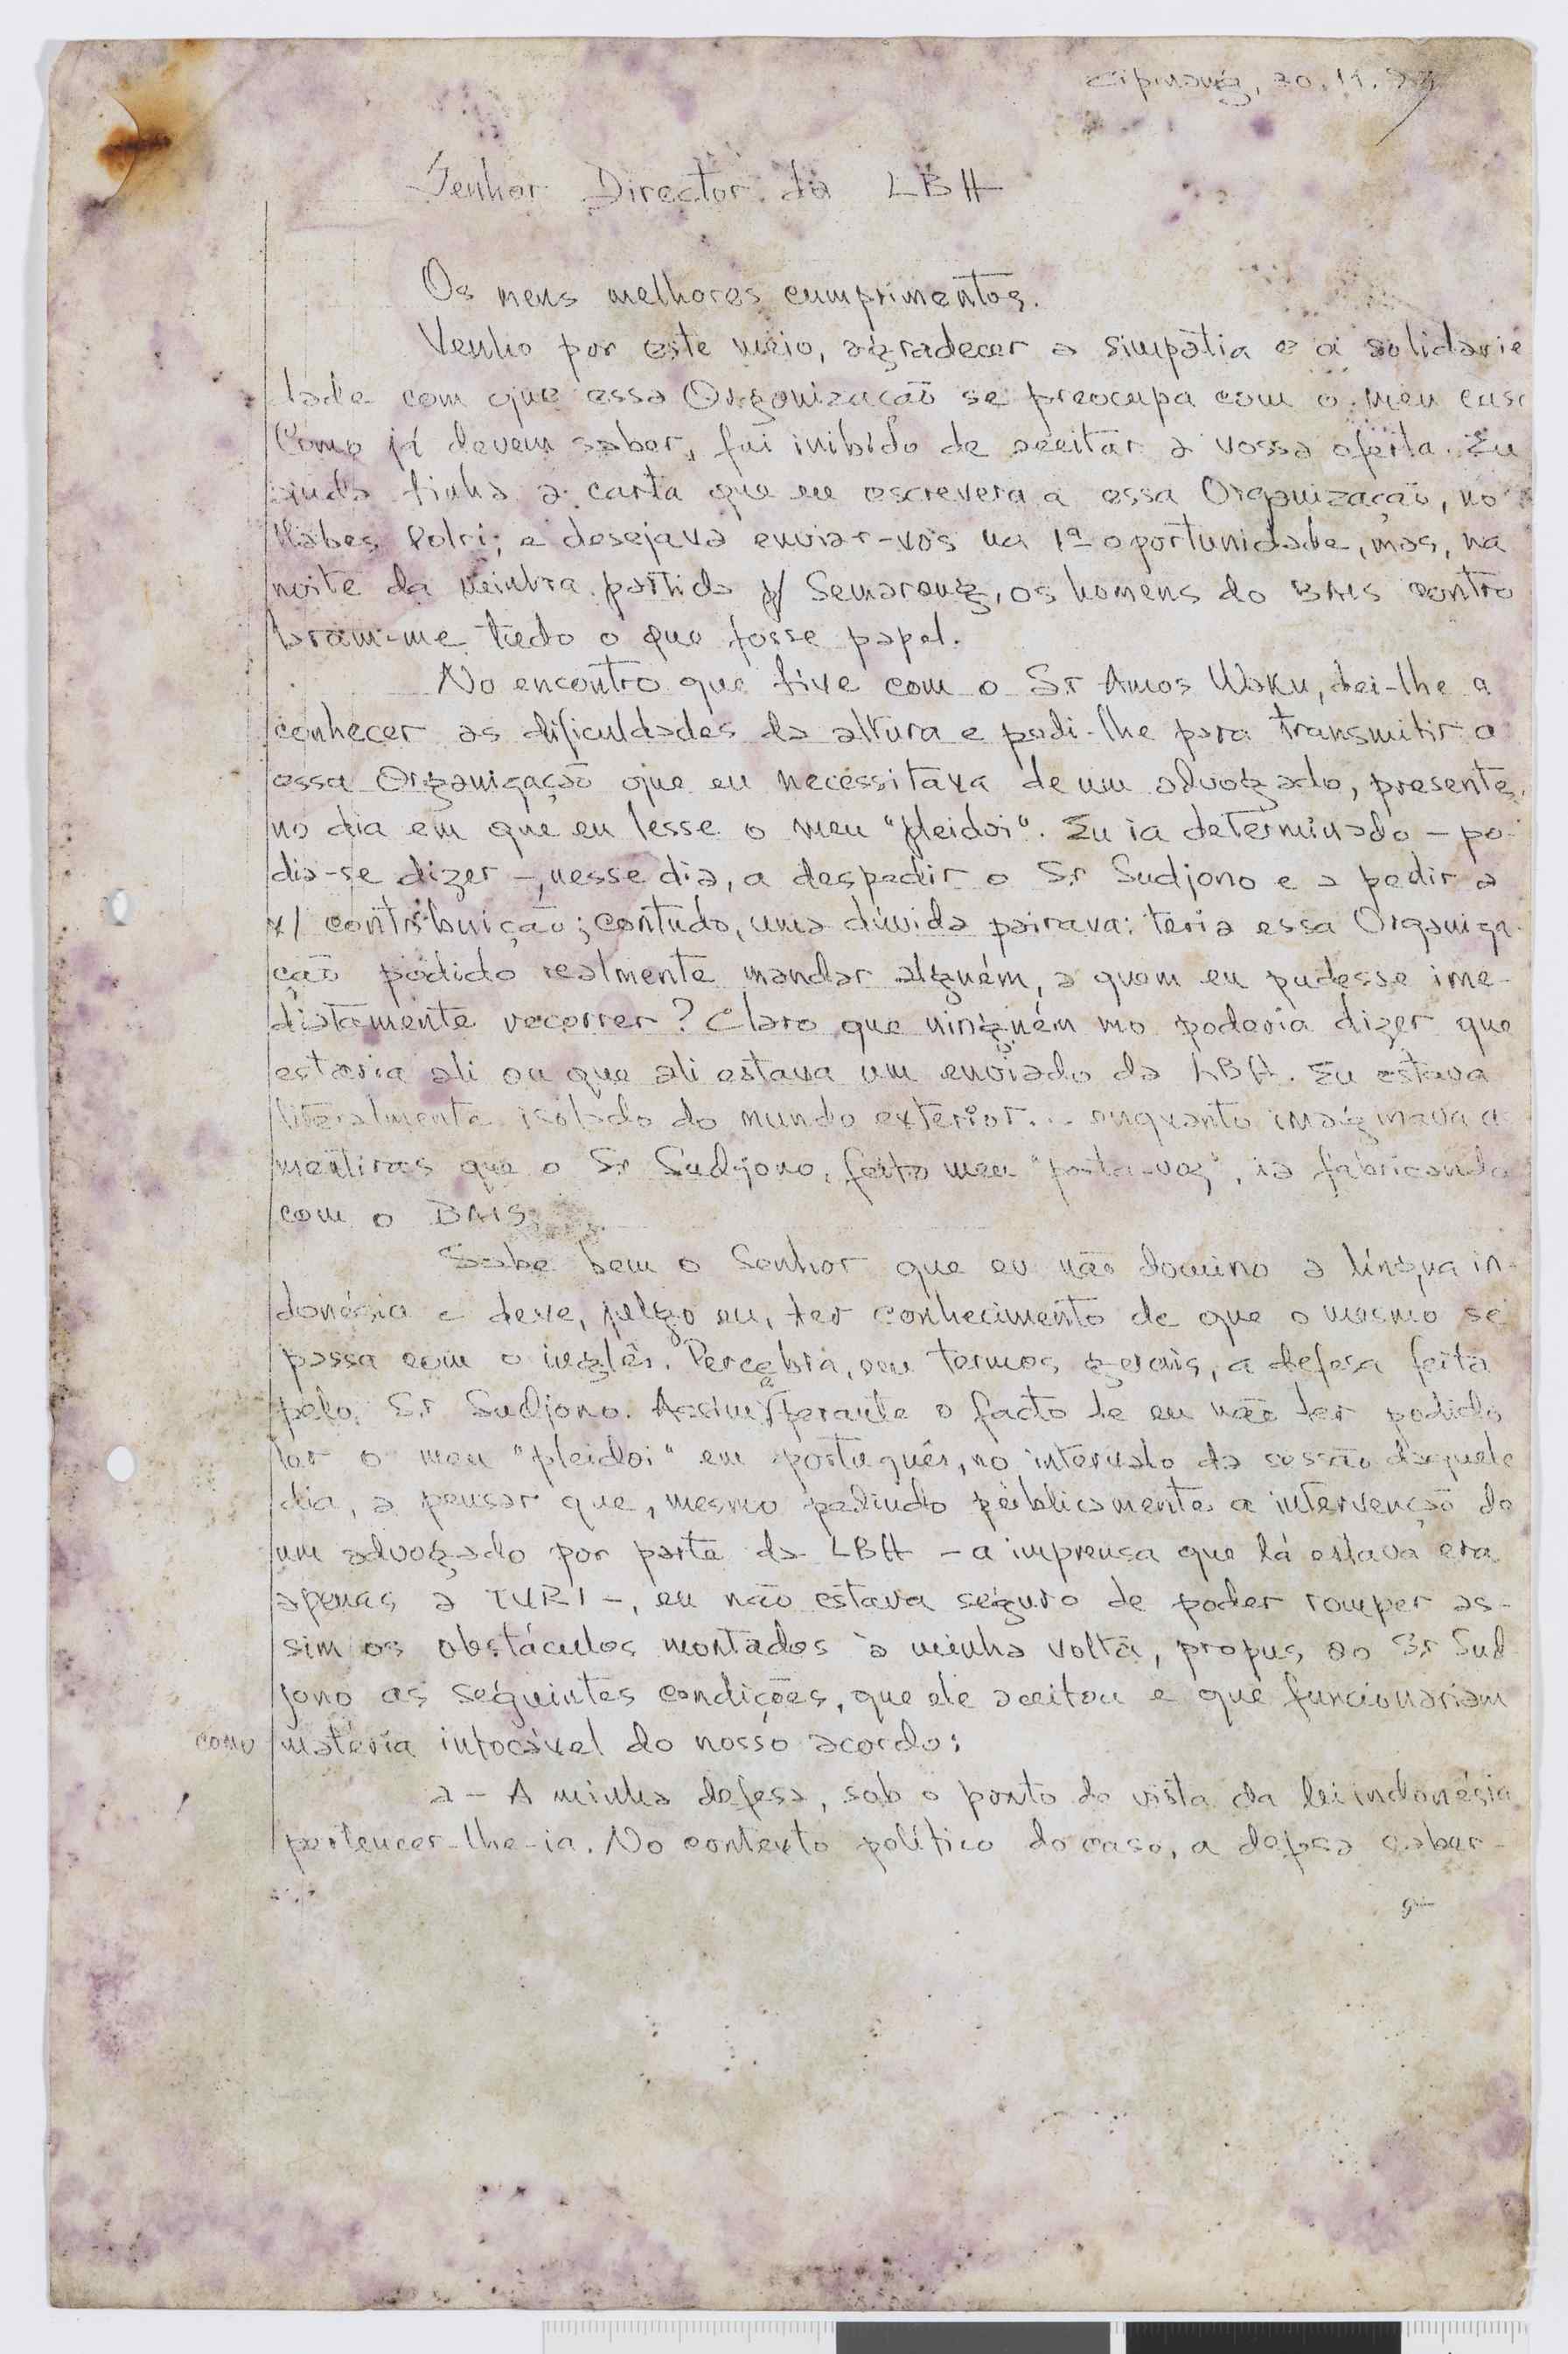 Cipinang, 30.11.93
Senhor Director da LBH
Os meus melhores cumprimentos.
Venho por este meio, agradecer a simpátia e a solidarie
dade com que essa Organização se preocupa com o meu caso
Como já devem saber, fui inibido de aceitar a vossa oferta. Eu
ainda tinha a carta que eu escrevera a essa Organização, no
Mabes Polri; e desejava enviar-vos na 1ª oportunidade, mas, na
noite da minha partida p/ Semarang, os homens do BAIS contro
laram-me tudo o que fosse papel.
No encontro que tive com o Sr Amos Waku, dei-lhe a
conhecer as dificuldades da altura e pedi-lhe para transmitir a
essa Organização que eu necessitava de um advogado, presente,
no dia em que eu lesse o meu "pleidoi". Eu ia determinado - po-
dia-se dizer -, nesse dia, a despedir o Sr Sudjono e a pedir a
v/ contribuição; contudo, uma dúvida pairava: teria essa Organiza
ção podido realmente mandar alguém, a quem eu pudesse ime-
diatamente recorrer? Claro que ninguém mo poderia dizer que
estaria ali ou que ali estava um enviado da LBH. Eu estava
literalmente isolado do mundo exterior... enquanto imaginava as
mentiras que o Sr Sudjono, feito meu "porta-voz", ia fabricando
com o BAIS.
Sabe bem o Senhor que eu não domino a língua in-
donésia e deve, julgo eu, ter conhecimento de que o mesmo se
passa com o inglês. Percebia, em termos gerais, a defesa feita
pelo Sr Sudjono. Assim, e perante o facto de eu não ter podido
ler o meu "pleidoi" em português, no intervalo da sessão daquele
dia, a pensar que, mesmo pedindo públicamente a intervenção de
um advogado por parte da LBH - a imprensa que lá estava era
apenas a TVRI -, eu não estava seguro de poder romper as-
sim os obstáculos montados à minha volta, propus ao Sr Sud
jono as seguintes condições, que ele aceitou e que funcionariam
como matéria intocável do nosso acordo:
a - A minha defesa, sob o ponto de vista da lei indonésia
pertencer-lhe-ia. No contexto político do caso, a defesa caber-